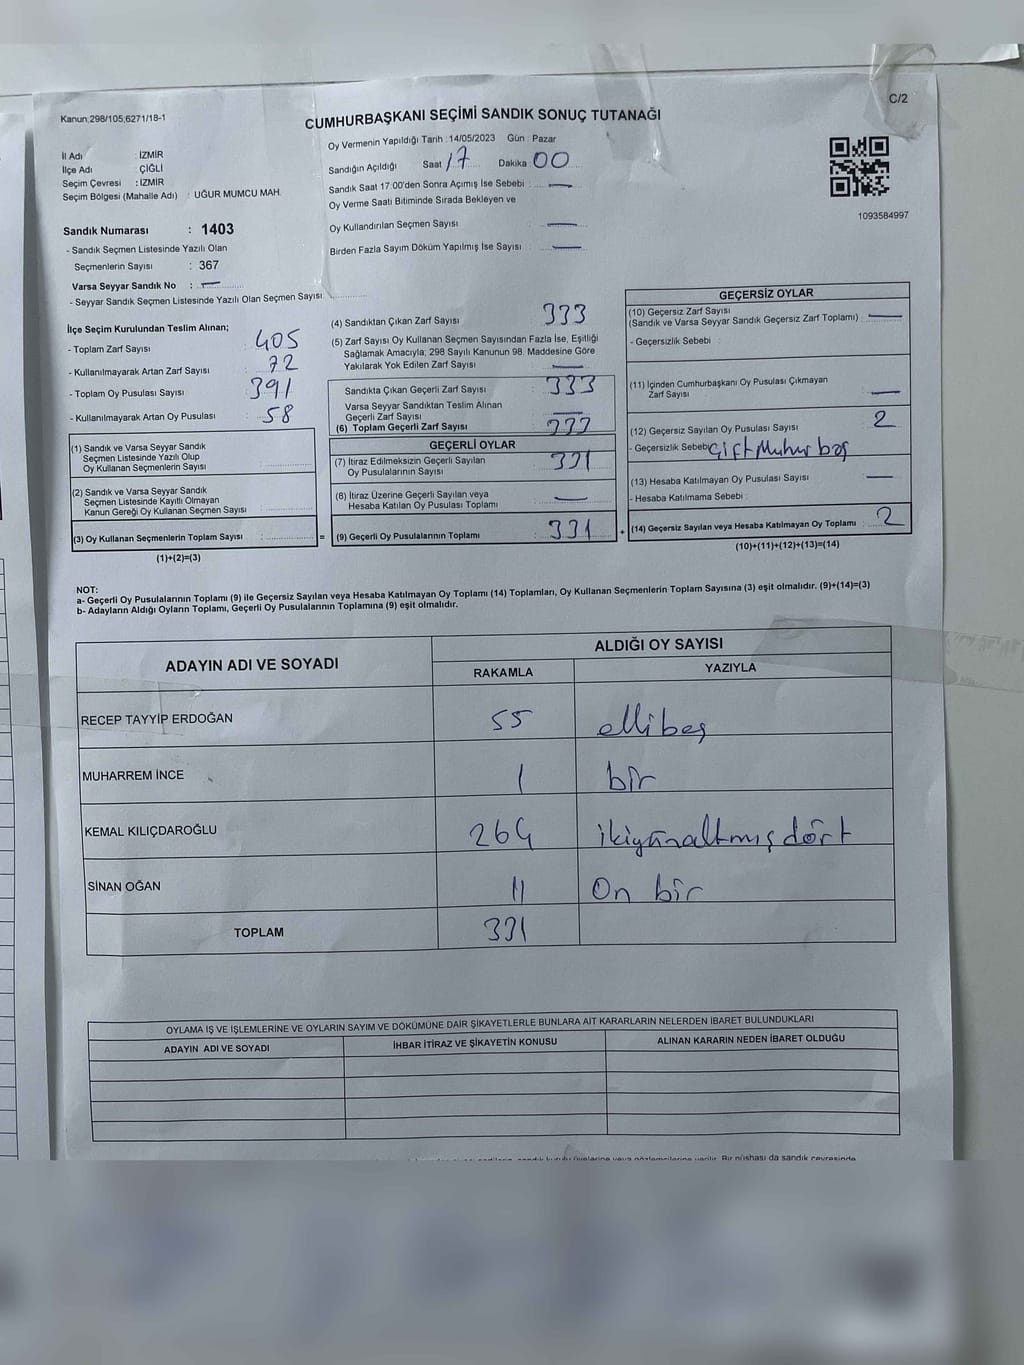 Kanun:298/105,6271/18-1
C/2
CUMHURBAŞKANI SEÇİMİ SANDIK SONUÇ TUTANAĞI
İl Adı : İZMİR
İlçe Adı : ÇİĞLİ
Seçim Çevresi : İZMİR
Seçim Bölgesi (Mahalle Adı) : UĞUR MUMCU MAH.
Sandık Numarası : 1403
- Sandık Seçmen Listesinde Yazılı Olan
Seçmenlerin Sayısı : 367
Varsa Seyyar Sandık No : —
- Seyyar Sandık Seçmen Listesinde Yazılı Olan Seçmen Sayısı :
Oy Vermenin Yapıldığı Tarih : 14/05/2023 Gün : Pazar
Sandığın Açıldığı Saat 17 Dakika 00
Sandık Saat 17:00'den Sonra Açımış İse Sebebi : —
Oy Verme Saati Bitiminde Sırada Bekleyen ve
Oy Kullandırılan Seçmen Sayısı : —
Birden Fazla Sayım Döküm Yapılmış İse Sayısı : —
1093584997
İlçe Seçim Kurulundan Teslim Alınan;
- Toplam Zarf Sayısı : 405
- Kullanılmayarak Artan Zarf Sayısı : 72
- Toplam Oy Pusulası Sayısı : 391
- Kullanılmayarak Artan Oy Pusulası : 58
(1) Sandık ve Varsa Seyyar Sandık
Seçmen Listesinde Yazılı Olup
Oy Kullanan Seçmenlerin Sayısı :
(2) Sandık ve Varsa Seyyar Sandık
Seçmen Listesinde Kayıtlı Olmayan
Kanun Gereği Oy Kullanan Seçmen Sayısı :
(3) Oy Kullanan Seçmenlerin Toplam Sayısı : =
(1)+(2)=(3)
(4) Sandıktan Çıkan Zarf Sayısı : 333
(5) Zarf Sayısı Oy Kullanan Seçmen Sayısından Fazla İse, Eşitliği
Sağlamak Amacıyla; 298 Sayılı Kanunun 98. Maddesine Göre
Yakılarak Yok Edilen Zarf Sayısı : —
Sandıkta Çıkan Geçerli Zarf Sayısı : 333
Varsa Seyyar Sandıktan Teslim Alınan
Geçerli Zarf Sayısı : —
(6) Toplam Geçerli Zarf Sayısı : 333
GEÇERLİ OYLAR
(7) İtiraz Edilmeksizin Geçerli Sayılan
Oy Pusulalarının Sayısı : 331
(8) İtiraz Üzerine Geçerli Sayılan veya
Hesaba Katılan Oy Pusulası Toplamı : —
(9) Geçerli Oy Pusulalarının Toplamı : 331 +
GEÇERSİZ OYLAR
(10) Geçersiz Zarf Sayısı
(Sandık ve Varsa Seyyar Sandık Geçersiz Zarf Toplamı) : —
- Geçersizlik Sebebi :
(11) İçinden Cumhurbaşkanı Oy Pusulası Çıkmayan
Zarf Sayısı : —
(12) Geçersiz Sayılan Oy Pusulası Sayısı : 2
- Geçersizlik Sebebi Çift Muhur
(13) Hesaba Katılmayan Oy Pusulası Sayısı : —
- Hesaba Katılmama Sebebi :
(14) Geçersiz Sayılan veya Hesaba Katılmayan Oy Toplamı : 2
(10)+(11)+(12)+(13)=(14)
NOT:
a- Geçerli Oy Pusulalarının Toplamı (9) ile Geçersiz Sayılan veya Hesaba Katılmayan Oy Toplamı (14) Toplamları, Oy Kullanan Seçmenlerin Toplam Sayısına (3) eşit olmalıdır. (9)+(14)=(3)
b- Adayların Aldığı Oyların Toplamı, Geçerli Oy Pusulalarının Toplamına (9) eşit olmalıdır.
ADAYIN ADI VE SOYADI
ALDIĞI OY SAYISI
RAKAMLA YAZIYLA
RECEP TAYYİP ERDOĞAN 55 ellibeş
MUHARREM İNCE 1 bir
KEMAL KILIÇDAROĞLU 264 ikiyüzaltmışdört
SİNAN OĞAN 11 On bir
TOPLAM 331
OYLAMA İŞ VE İŞLEMLERİNE VE OYLARIN SAYIM VE DÖKÜMÜNE DAİR ŞİKAYETLERLE BUNLARA AİT KARARLARIN NELERDEN İBARET BULUNDUKLARI
ADAYIN ADI VE SOYADI İHBAR İTİRAZ VE ŞİKAYETİN KONUSU ALINAN KARARIN NEDEN İBARET OLDUĞU